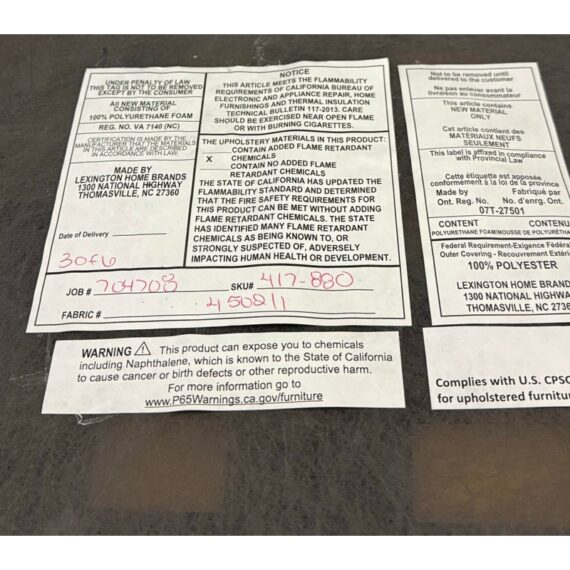 UNDER PENALTY OF LAW
THIS TAG IS NOT TO BE REMOVED
EXCEPT BY THE CONSUMER
All NEW MATERIAL
CONSISTING OF
100% POLYURETHANE FOAM
REG. NO. VA 7140 (NC)
CERTIFICATION IS MADE BY THE
MANUFACTURER THAT THE MATERIALS
IN THIS ARTICLE ARE DESCRIBED
IN ACCORDANCE WITH LAW.
MADE BY
LEXINGTON HOME BRANDS
1300 NATIONAL HIGHWAY
THOMASVILLE, NC 27360
Date of Delivery
3 of 6
NOTICE
THIS ARTICLE MEETS THE FLAMMABILITY
REQUIREMENTS OF CALIFORNIA BUREAU OF
ELECTRONIC AND APPLIANCE REPAIR, HOME
FURNISHINGS AND THERMAL INSULATION
TECHNICAL BULLETIN 117-2013. CARE
SHOULD BE EXERCISED NEAR OPEN FLAME
OR WITH BURNING CIGARETTES.
THE UPHOLSTERY MATERIALS IN THIS PRODUCT:
CONTAIN ADDED FLAME RETARDANT
CHEMICALS
X CONTAIN NO ADDED FLAME
RETARDANT CHEMICALS
THE STATE OF CALIFORNIA HAS UPDATED THE
FLAMMABILITY STANDARD AND DETERMINED
THAT THE FIRE SAFETY REQUIREMENTS FOR
THIS PRODUCT CAN BE MET WITHOUT ADDING
FLAME RETARDANT CHEMICALS. THE STATE
HAS IDENTIFIED MANY FLAME RETARDANT
CHEMICALS AS BEING KNOWN TO, OR
STRONGLY SUSPECTED OF, ADVERSELY
IMPACTING HUMAN HEALTH OR DEVELOPMENT.
JOB # 704708 SKU# 417-880
FABRIC # 450811
WARNING This product can expose you to chemicals
including Naphthalene, which is known to the State of California
to cause cancer or birth defects or other reproductive harm.
For more information go to
www.P65Warnings.ca.gov/furniture
Not to be removed until
delivered to the customer
Ne pas enlever avant la
livraison au consommateur
This article contains
NEW MATERIAL
ONLY
Cet article contient des
MATÉRIAUX NEUFS
SEULEMENT
This label is affixed in compliance
with Provincial Law
Cette étiquette est apposée
conformément à la loi de la province
Made by Fabriqué par
Ont. Reg. No. No. d'enrg. Ont.
07T-27501
CONTENT CONTENU
POLYURETHANE FOAM/MOUSSE DE POLYURÉTHA
Federal Requirement-Exigence Fédéra
Outer Covering - Recouvrement Extéri
100% POLYESTER
LEXINGTON HOME BRAND
1300 NATIONAL HIGHWA
THOMASVILLE, NC 2736
Complies with U.S. CPSC
for upholstered furnitu